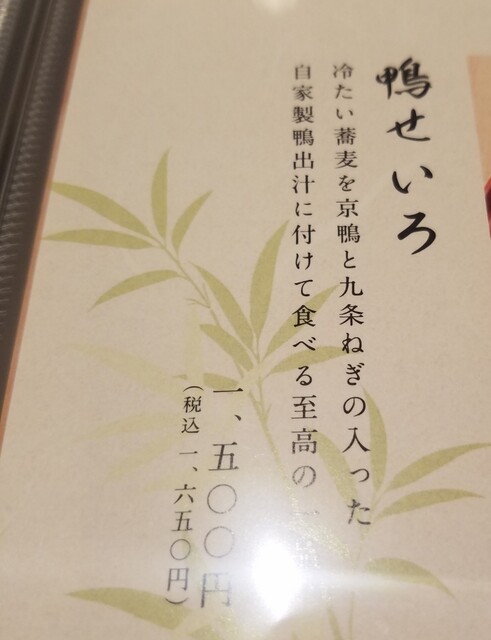 鴨せいろ
冷たい蕎麦を京鴨と九条ねぎの入った
自家製鴨出汁に付けて食べる至高の一
一、五〇〇円
（税込 一、六五〇円）